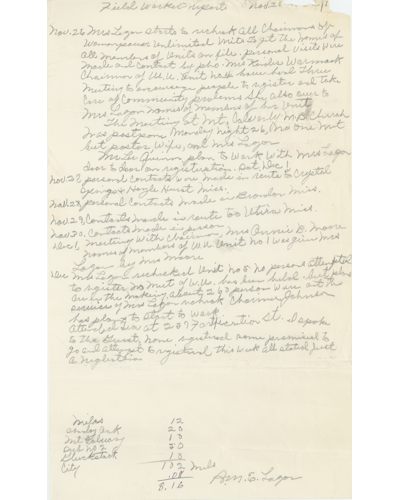 Field Worker Report Nov 26
Nov. 26 Mrs Logan starts to recheck all Chairmans of
Womanpower Unlimited Units to get the names of
all members of Units on file. personal visits were
made and Contact by pho. Mrs
Chairman of W.U. Unit no have had Three
Meeting to encourage people to register and take
care of Community problems She also gave to
Mrs Logan names of members of her Unit
The Meeting at Mt. Calvary M.B. Church
was postpone Monday night 26, No one met
but pastor, Wife, and Mrs Logan
Mr. Lee Quinn plan to Work With Mrs Logan
door to door on registration Sat, Dec 1
Nov. 27, personal Contacts were made in route to Crystal
Springs + Hazlehurst Miss.
Nov. 28, personal Contacts made in Brandon Miss.
Nov 29, Contacts made in route to Utica Miss.
Nov 30, Contacts made in person
Dec 1 meeting With Chairman, Mrs Annie B. Moore
names of members of W.U. Unit no 1 was given Mrs
Logan by Mrs Moore
Dec Mrs Logan rechecked Unit no 5 no persons attempted
to register no meet of W.U. has been held but plans
are in the making about 263 person were at the
services of Mrs Logan recheck Chairman Johnson
has plans to start to work
attended Sun at 207 St. I spoke
to the Guest, none registered some promised to
go and attempt to registered this week all stated just
a neglection
Miles 12
20
Mt 10
50
Gluckstadt 10
City 102 mils
.08
8.16
Mrs. E. Logan